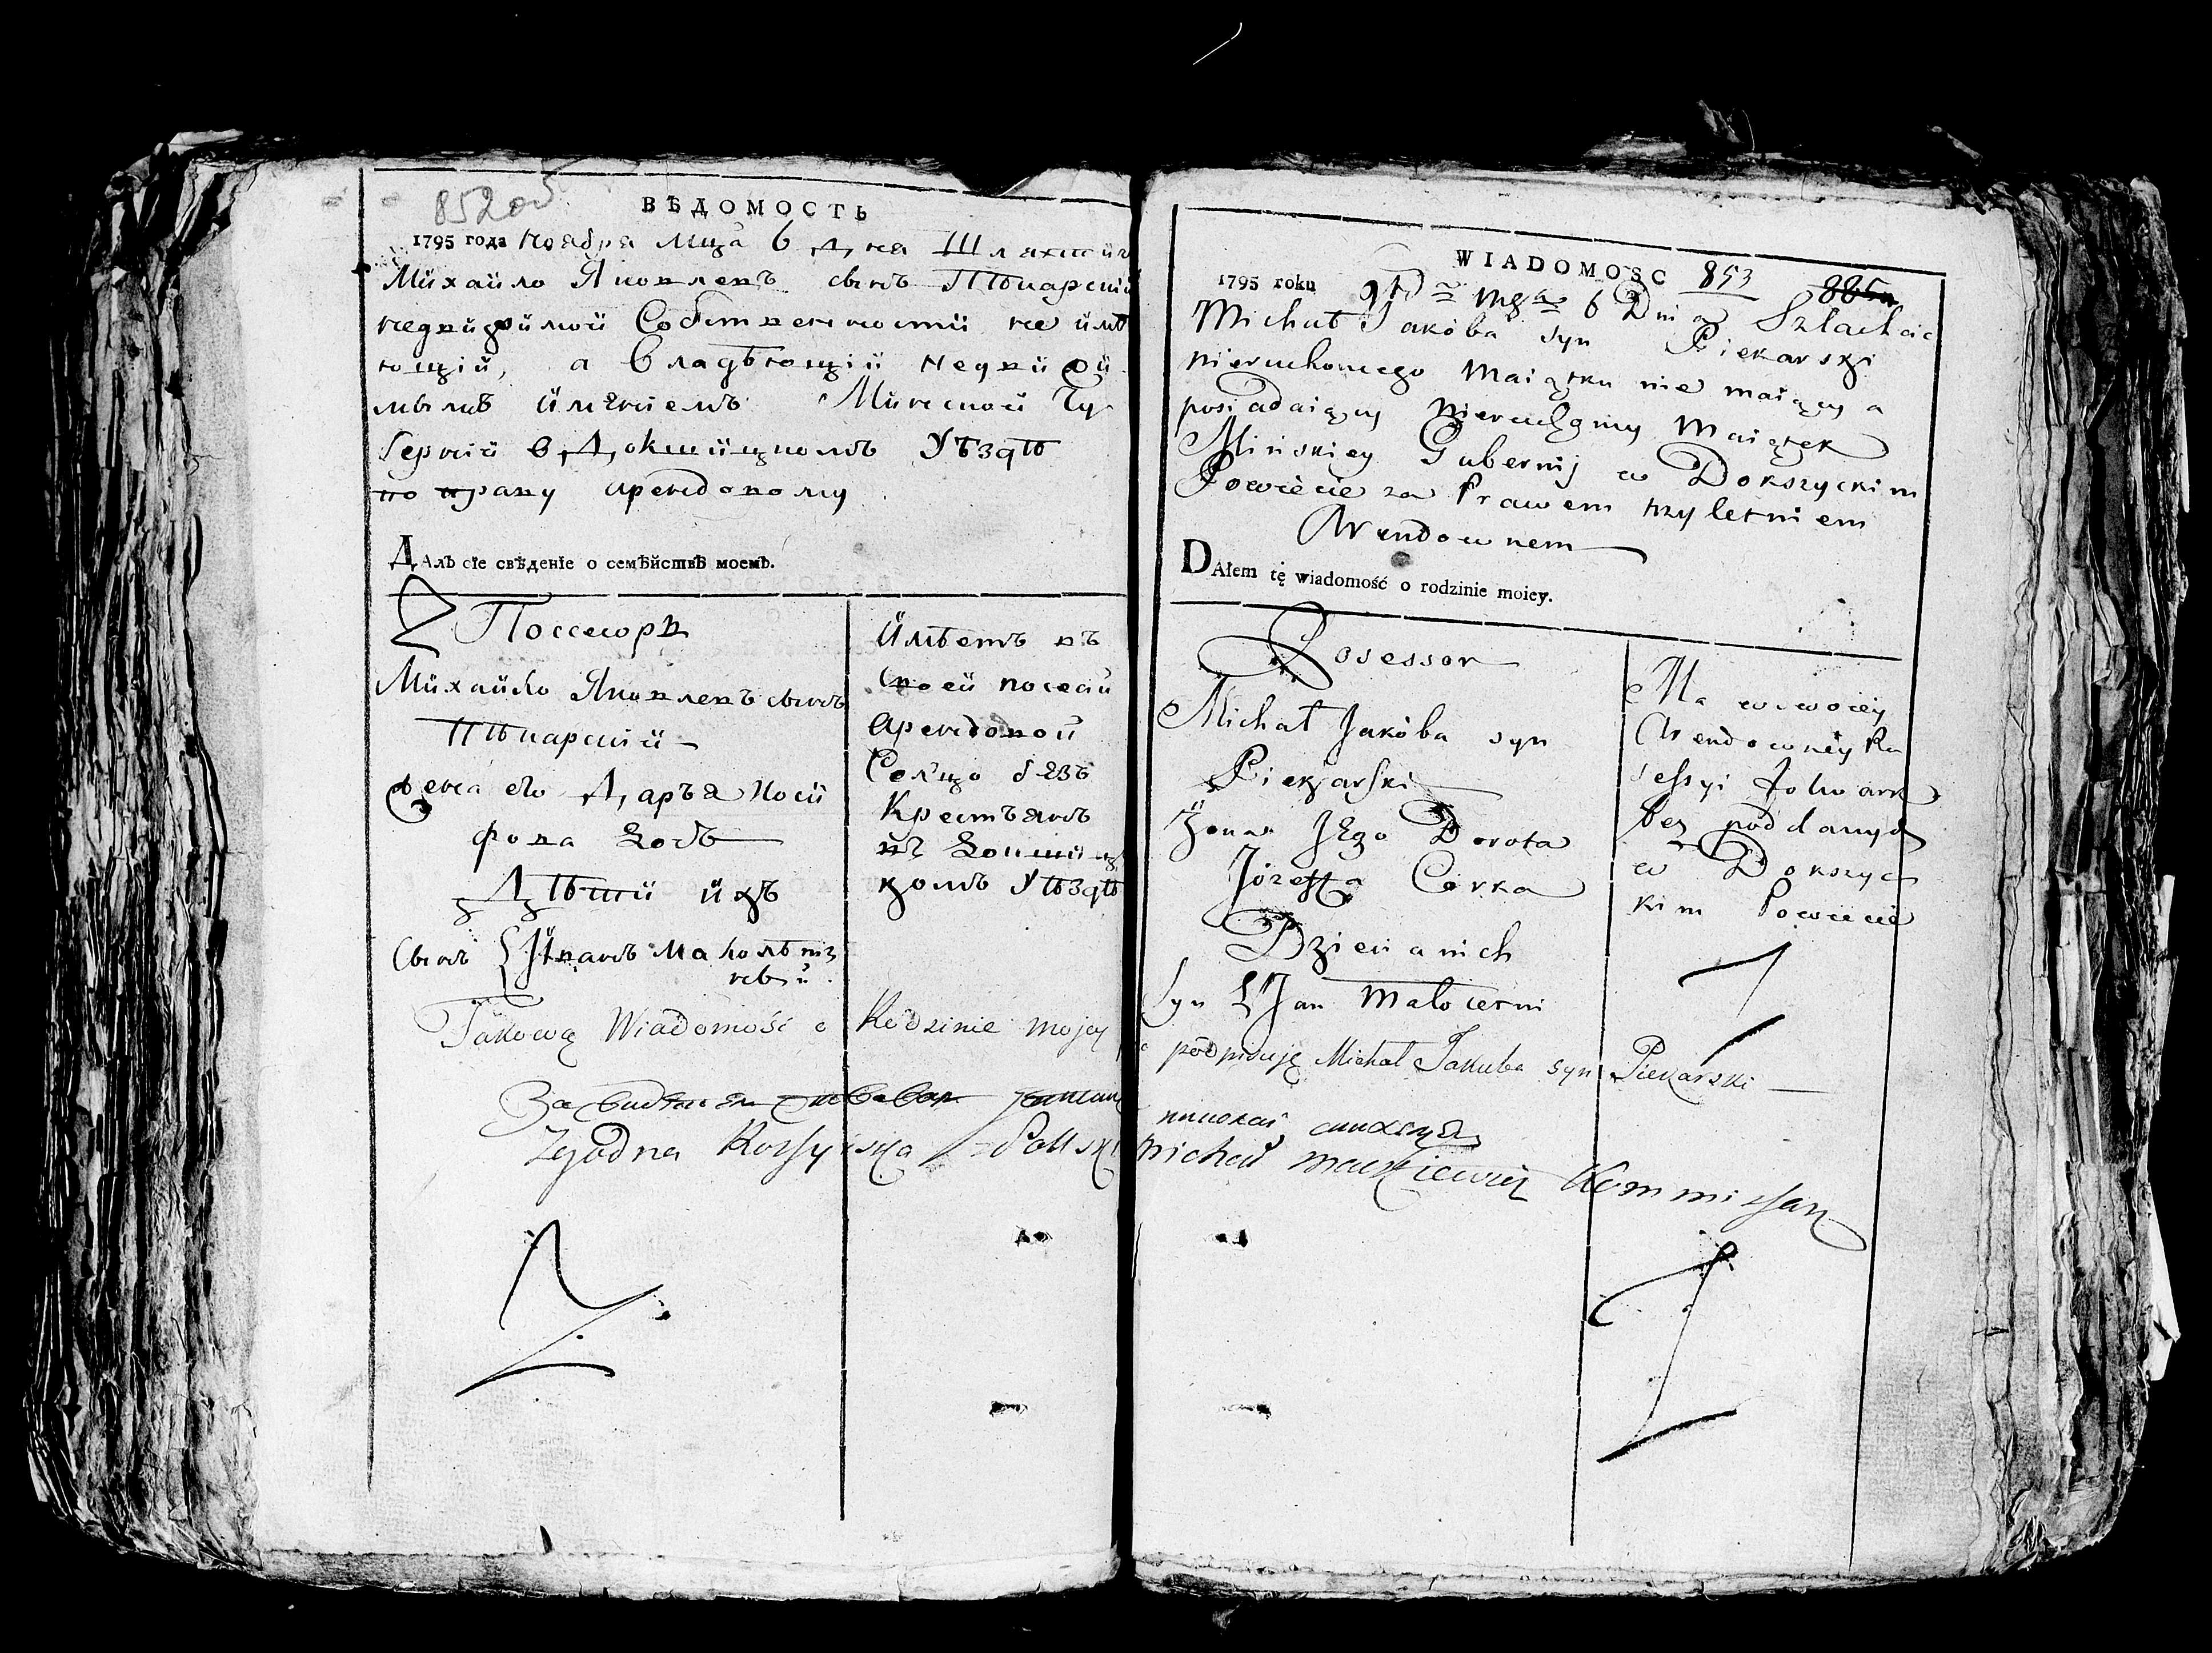 852об
ВѢДОМОСТЬ
1795 года Ноября мца 6 Дня Шляхтич
Михайло Яковлевъ сынъ Пѣкарский
недвижимой Собственности не имѣ
ющій, а владѣющій недвижи
мымъ имѣниемъ Минской Гу
бернии в Докшицкомъ Уѣздѣ
по праву арендовому
Далъ сіе свѣденіе о семѣйствѣ моемъ.
Поссесоръ
Михайло Яковлевъ сынъ
Пѣкарский
Жена его Дарья Иоси
фова Дочь
Дѣти ихъ
Сынъ Иванъ малолѣт
ный
Имѣетъ въ
своей посесии
арендовой
Сельцо безъ
Крестьянъ
въ Докшиц
комъ Уѣздѣ
WIADOMOSC 853
1795 roku 9bra 6 Dnia Szlachcic
Michał Jakóba syn Piekarski
nieruchomego Maiątku nie maiący a
posiadaiący Nieruchomy Maiątek
Mińskiey Gubernij w Dokszyckim
Powiecie za Prawem trzyletniem
Arendownem
DAłem tę wiadomość o rodzinie moiey.
Posessor
Michał Jakóba syn
Piekarski
Żona Jego Dorota
Józeffa Corka
Dzieci a nich
Syn Jan Małoletni
Ma w swoiey
Arendowney Po
sessyi Folwark
bez poddanych
w Dokszyc
kim Powiecie
Takową Wiadomość o Rodzinie mojey podpisuję Michał Jakuba syn Piekarski
Zgodna Rossyiska z Polską Michał Mackiewicz Kommissarz